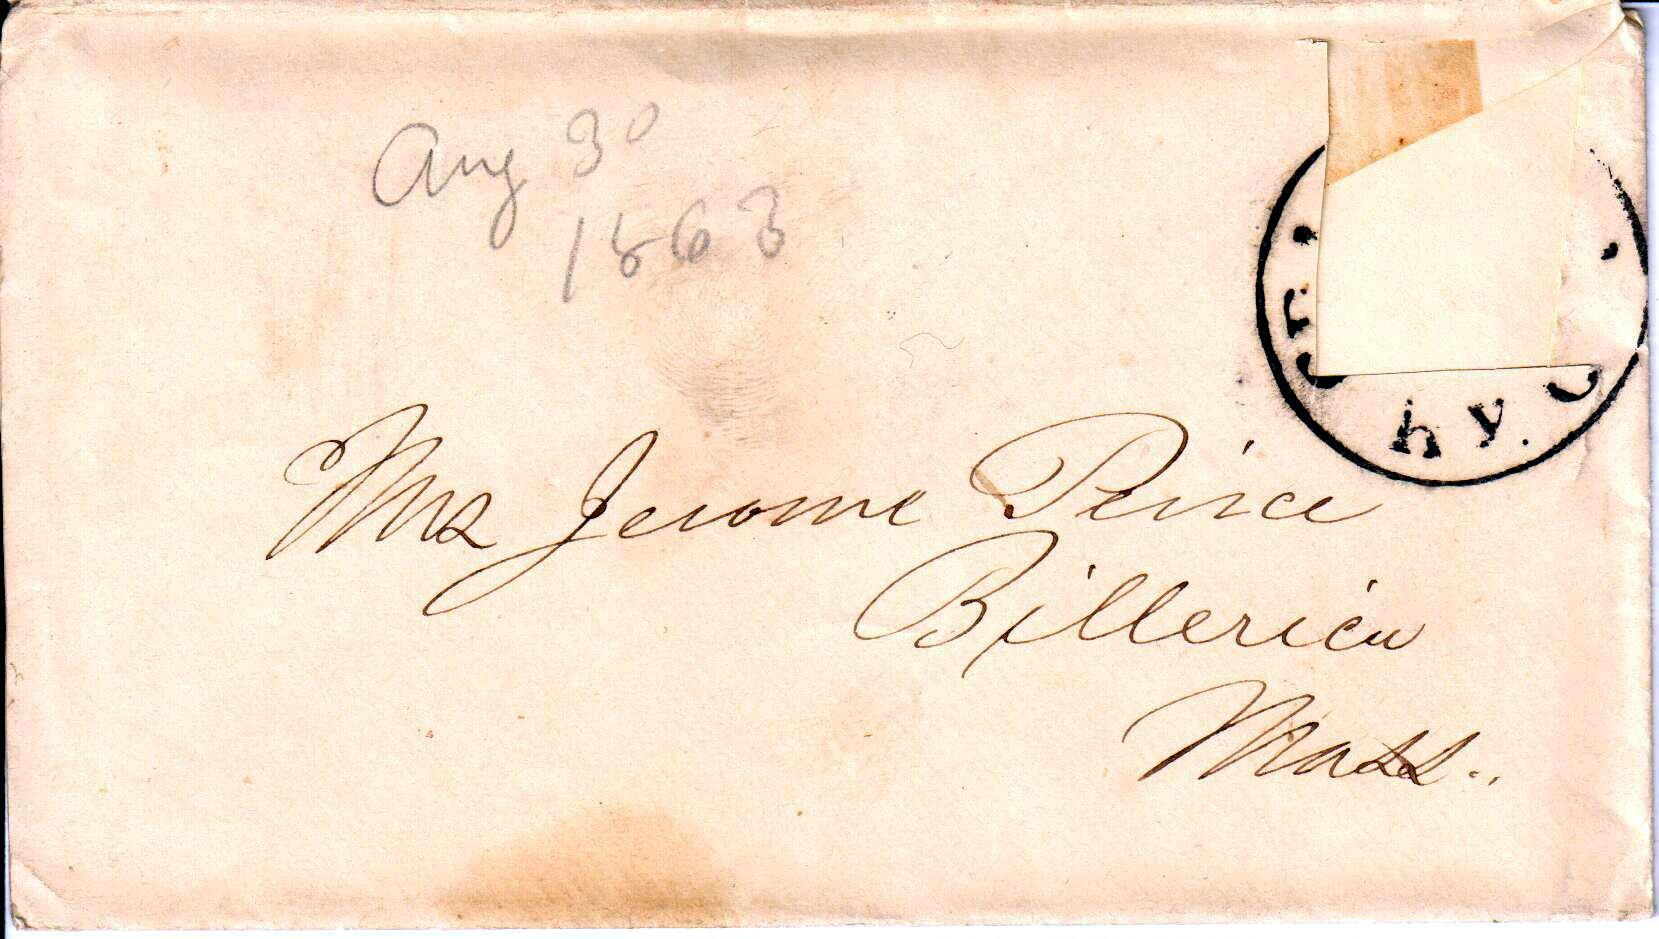 Aug 30
1863
Mrs Jerome Peirce
Billerica
Mass..